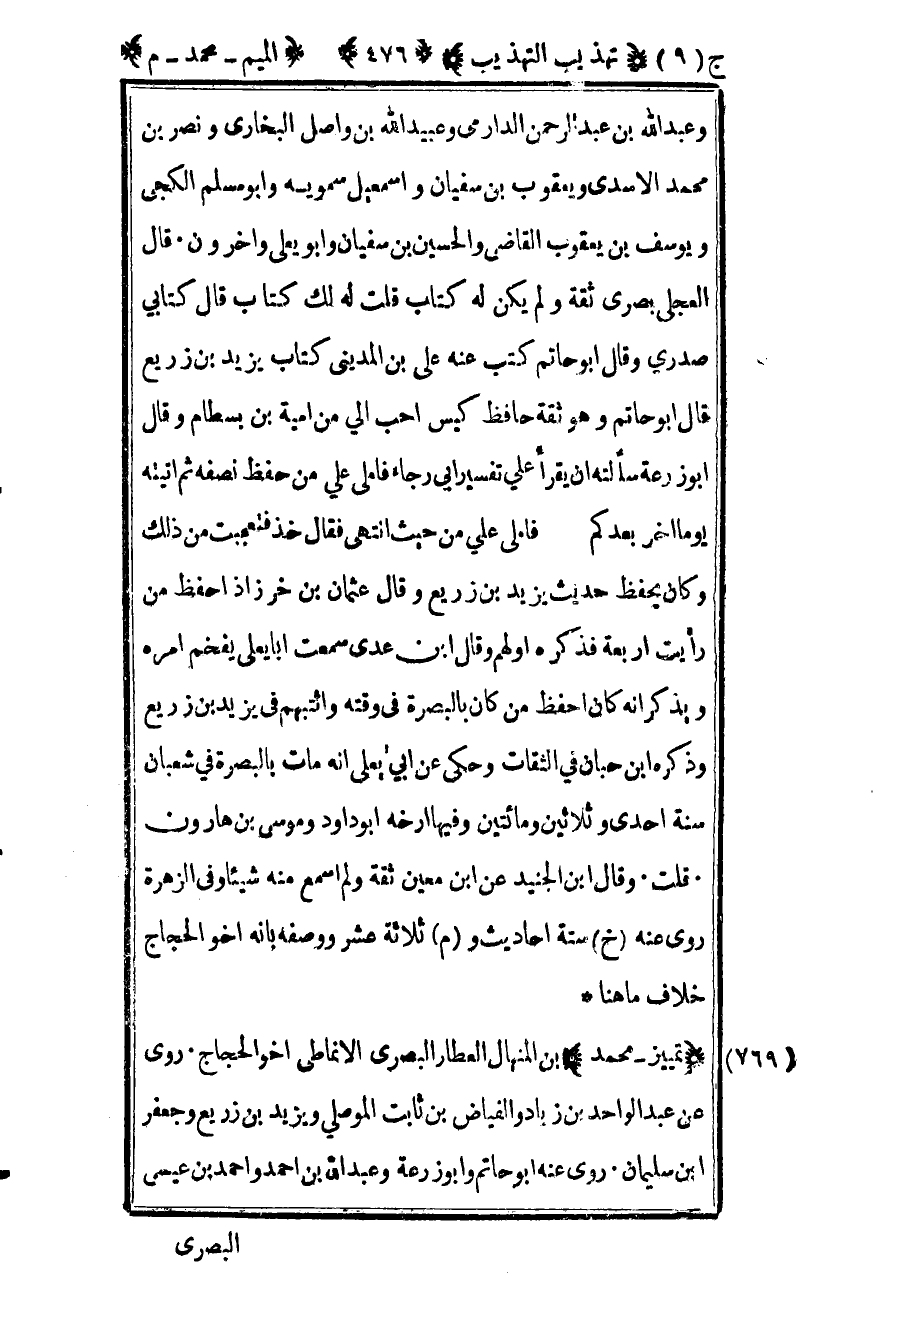 ج (٩) ﴿ تهذيب التهذيب ﴾ ﴿ ٤٧٦ ﴾ ﴿ الميم ـ محمد ـ م ﴾
وعبدالله بن عبدالرحمن الدارمى وعبيدالله بن واصل البخارى و نصر بن
محمد الاسدى ويعقوب بن سفيان و اسمعيل سمويه وابو مسلم الكجى
و يوسف بن يعقوب القاضى والحسين بن سفيان وابو يعلى واخرون ٠ قال
العجلى بصرى ثقة و لم يكن له كتاب قلت له لك كتاب قال كتابي
صدري وقال ابو حاتم كتب عنه على بن المدينى كتاب يزيد بن زريع
قال ابو حاتم و هو ثقة حافظ كيس احب الي من امية بن بسطام و قال
ابو زرعة سألته ان يقرأ علي تفسير ابي رجاء فاملى علي من حفظ نصفه ثم اتيته
يوما اخر بعد كم فاملى علي من حيث انتهى فقال خذ فتعجبت من ذلك
وكان يحفظ حديث يزيد بن زريع و قال عثمان بن خرزاذ احفظ من
رأيت اربعة فذكره اولهم وقال ابن عدى سمعت ابا يعلى يفخم امره
و يذكر انه كان احفظ من كان بالبصرة فى وقته واثبتهم فى يزيد بن زريع
وذكره ابن حبان في الثقات وحكى عن ابي يعلى انه مات بالبصرة في شعبان
سنة احدى و ثلاثين ومائتين وفيها ارخه ابوداود وموسى بن هارون
٠ قلت ٠ وقال ابن الجنيد عن ابن معين ثقة ولم اسمع منه شيئا وفى الزهرة
روى عنه (خ) ستة احاديث و (م) ثلاثة عشر ووصفه بانه اخو الحجاج
خلاف ماهنا *
(٧٦٩) ﴿ تمييز ـ محمد ﴾ بن المنهال العطار البصرى الانماطى اخو الحجاج ٠ روى
عن عبدالواحد بن زياد والفياض بن ثابت الموصلي ويزيد بن زريع وجعفر
ابن سليمان ٠ روى عنه ابو حاتم وابو زرعة وعبدالله بن احمد واحمد بن عيسى
البصرى